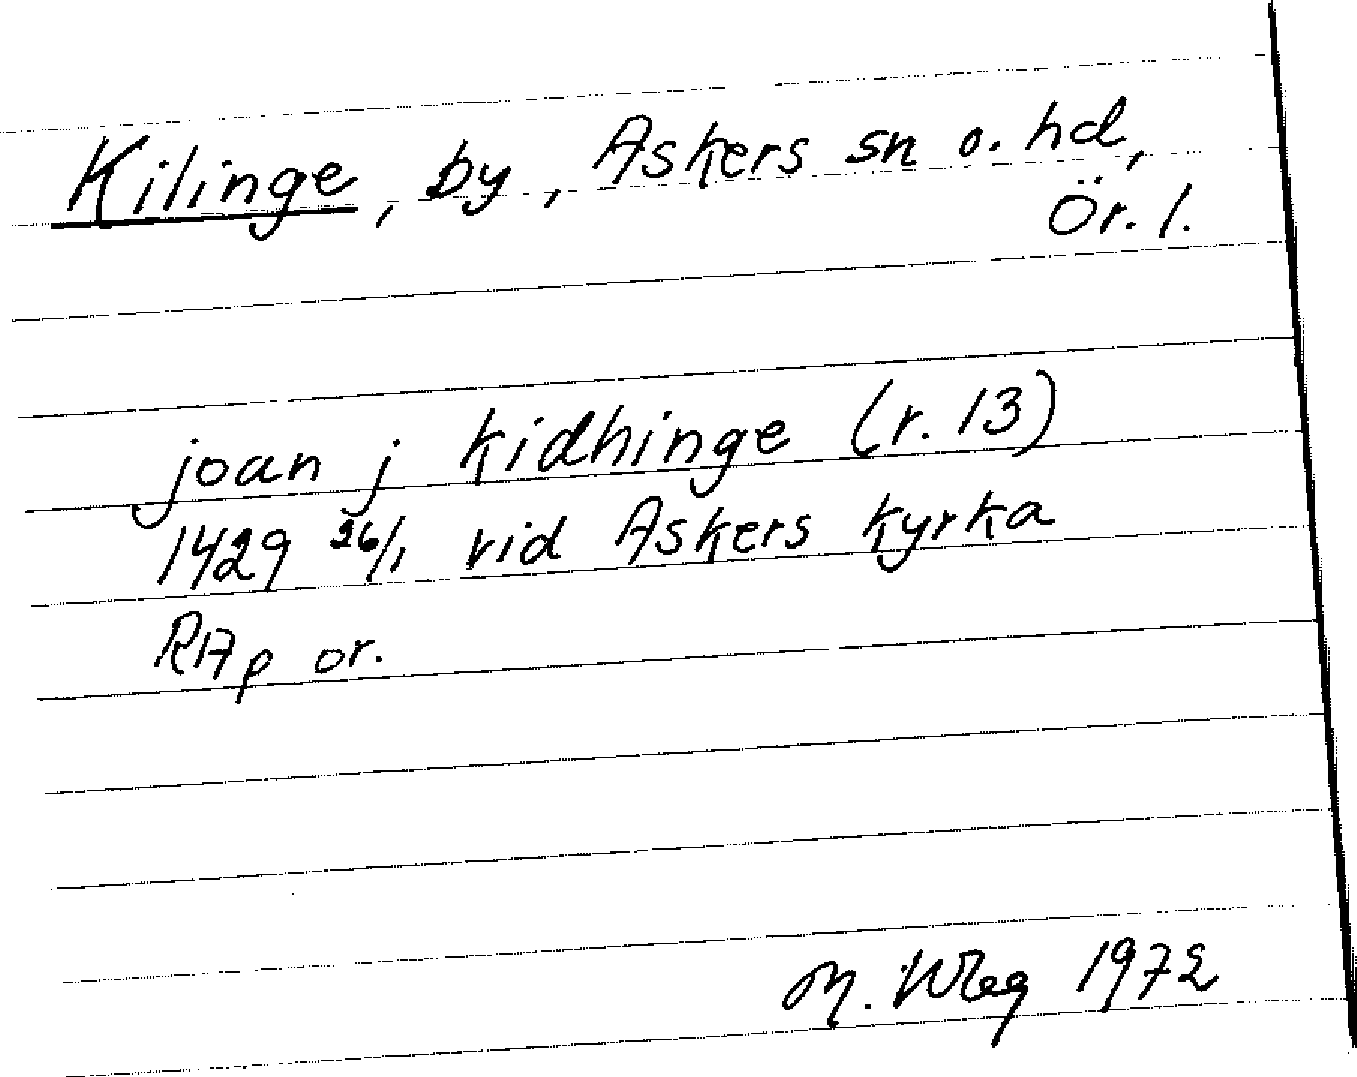 Kilinge, by, Askers sn o. hd,
Ör. l.
joan j kidhinge (r. 13)
1429 26/1 vid Askers kyrka
RAp or.
M. 1972